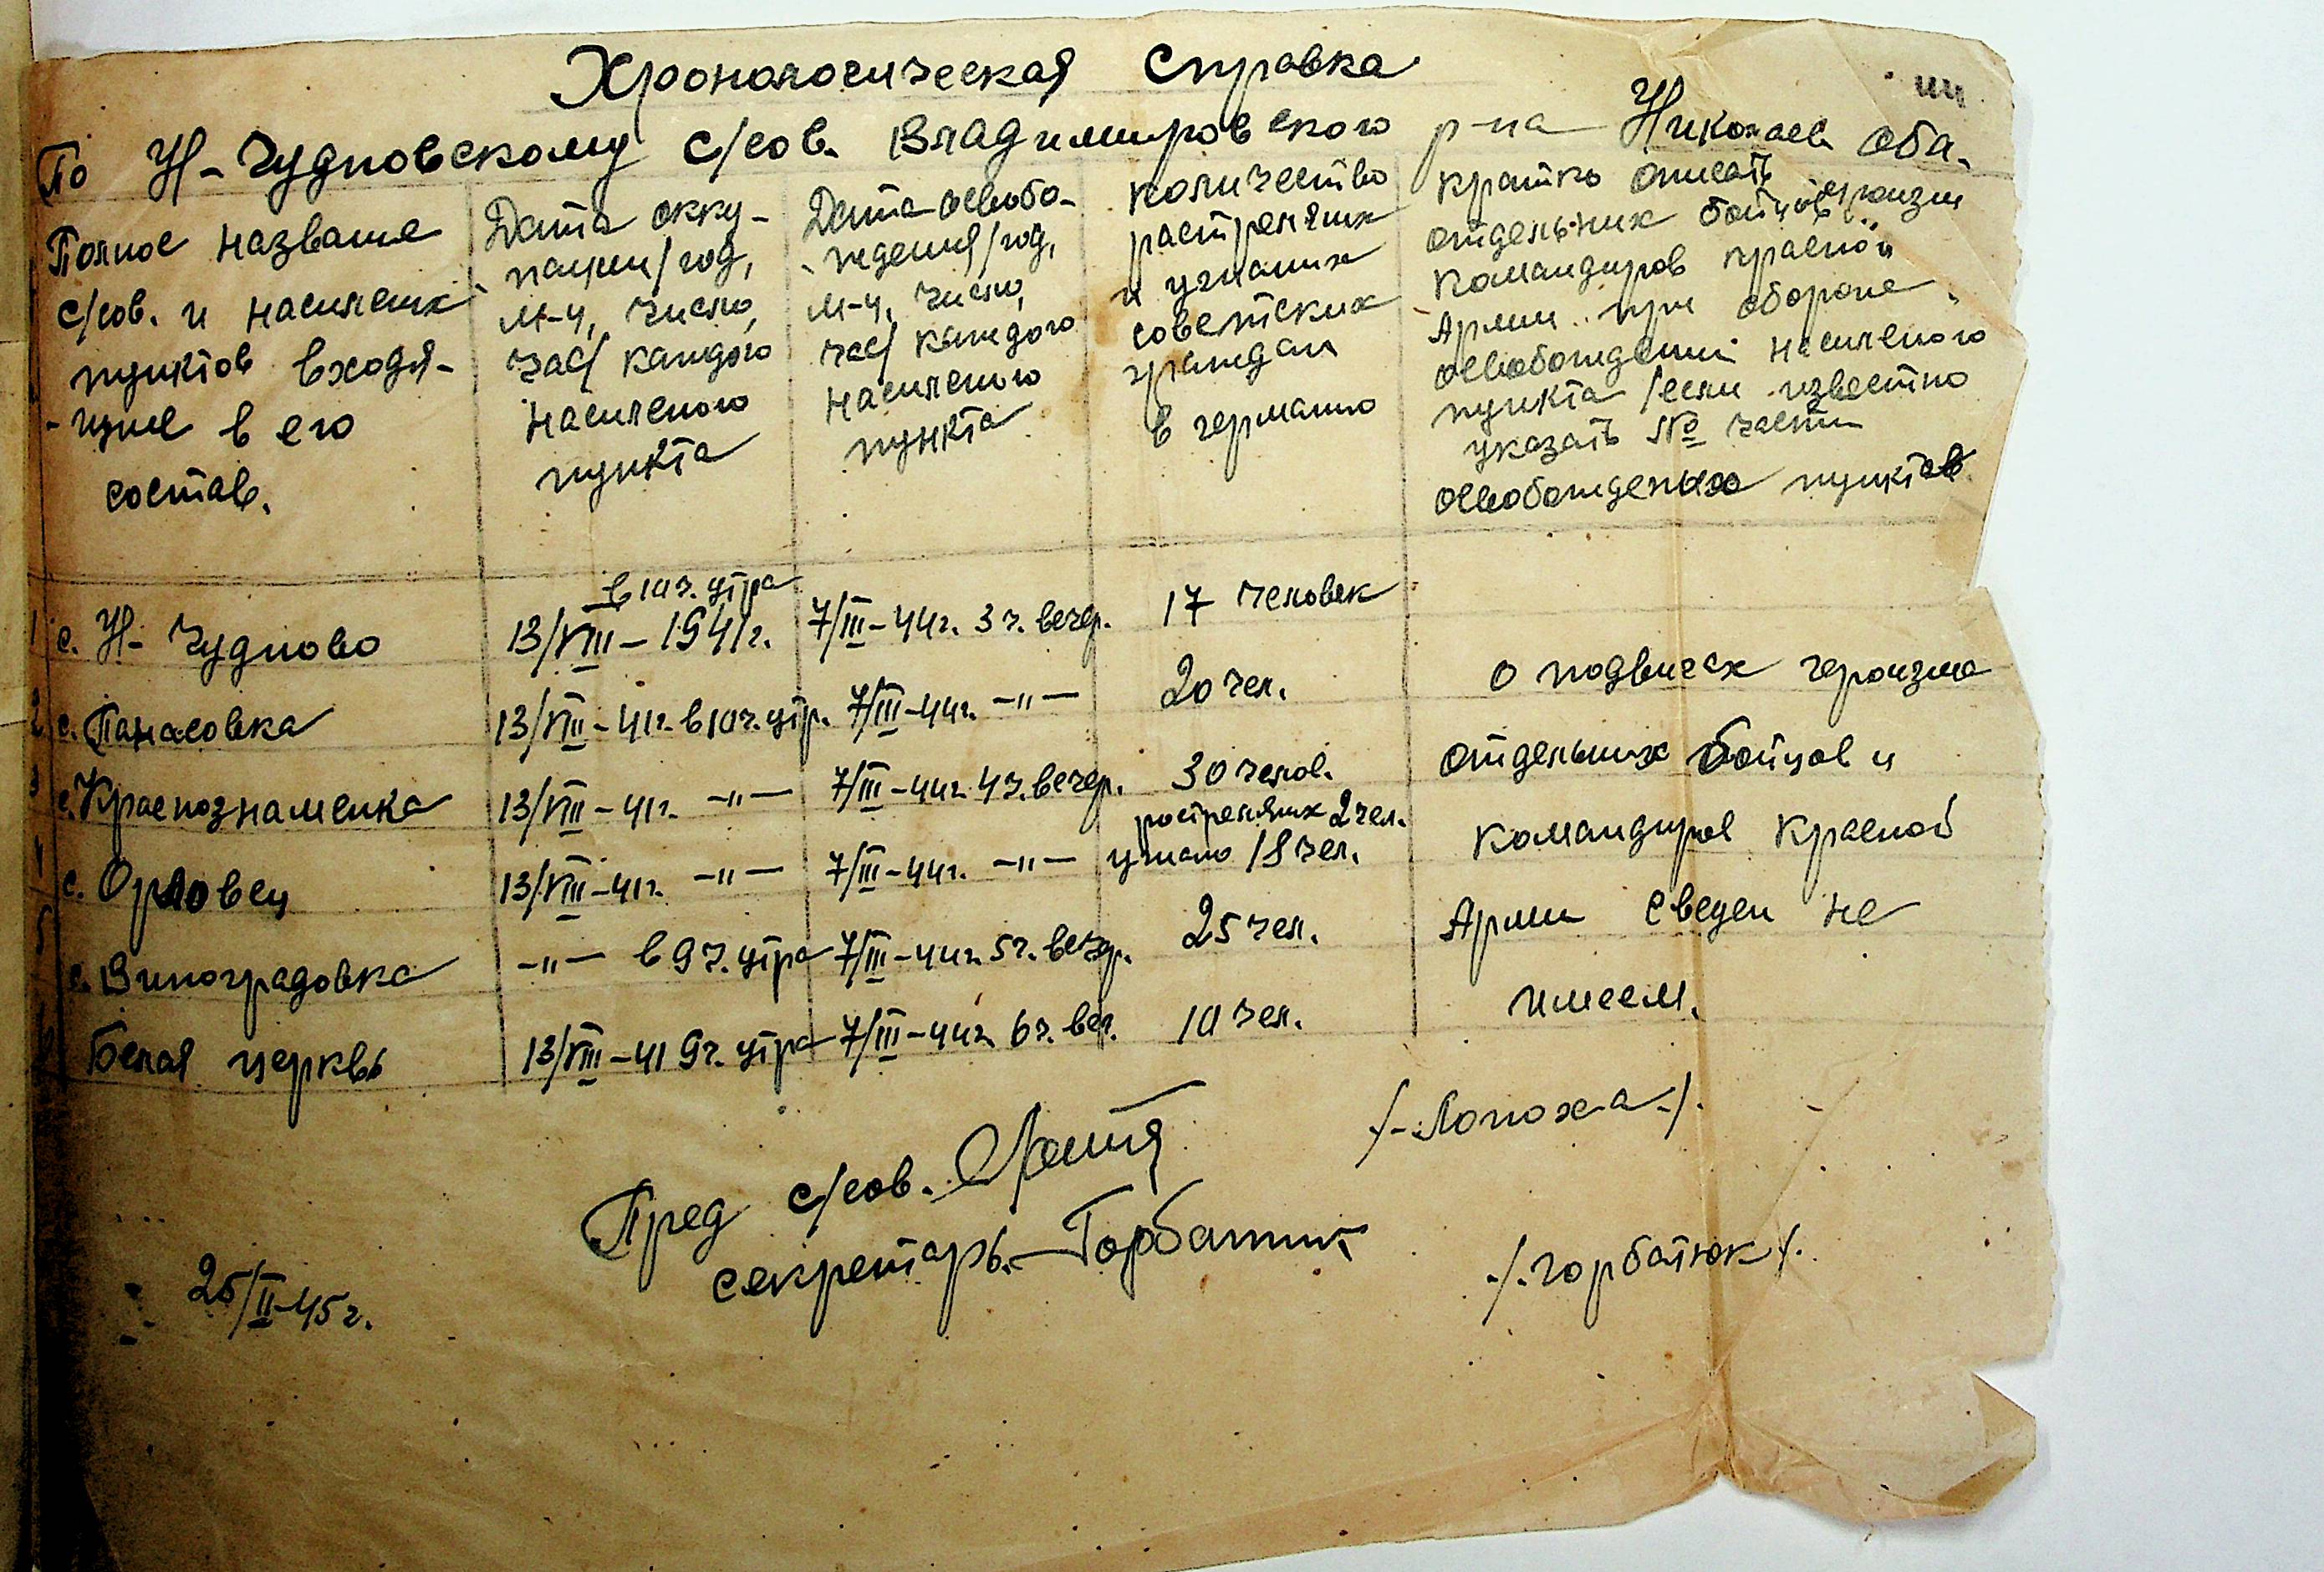 Хронологическая справка
По Н-Чудновскому с/сов. Владимировского р-на Николаев. обл.
Полное название
с/сов. и населених
пунктов входя-
-щие в его
состав.
Дата окку-
-пации/год,
м-ц, число,
час/ каждого
населеного
пункта
Дата освобо-
-ждения/год,
м-ц, число,
час/ каждого
населеного
пункта
количество
растреляних
и угнаних
советских
граждан
в германию
кратко описать героизм
отдельних бойцов
командиров красной
Армии при обороне
освобождении населеного
пункта /если известно
указать № части
освобожденых пунктов
1 с. Н-Чудново в 10 ч. утра 13/VIII-1941г. 7/III-44г. 3 ч. вечер. 17 человек
2 с. Панасовка 13/VIII-41г. в 10 ч. утр. 7/III-44г. -"- 20 чел.
3 с. Краснознаменка 13/VIII-41г. -"- 7/III-44г. 4 ч. вечер. 30 челов.
4 с. Орловец 13/VIII-41г. -"- 7/III-44г. -"- ростреляних 2 чел. угнано 18 чел.
5 с. Виноградовка -"- в 9 ч. утра 7/III-44г. 5 ч. вечер. 25 чел.
6 Белая церквь 13/VIII-41 9 ч. утра 7/III-44г. 6 ч. веч. 10 чел.
О подвигах героизма
отдельних бойцов и
командиров Красной
Армии сведен не
имеем.
Пред с/сов. /-Лопоха-/.
секретарь. Горбатюк /.Горбатюк/.
25/II-45г.